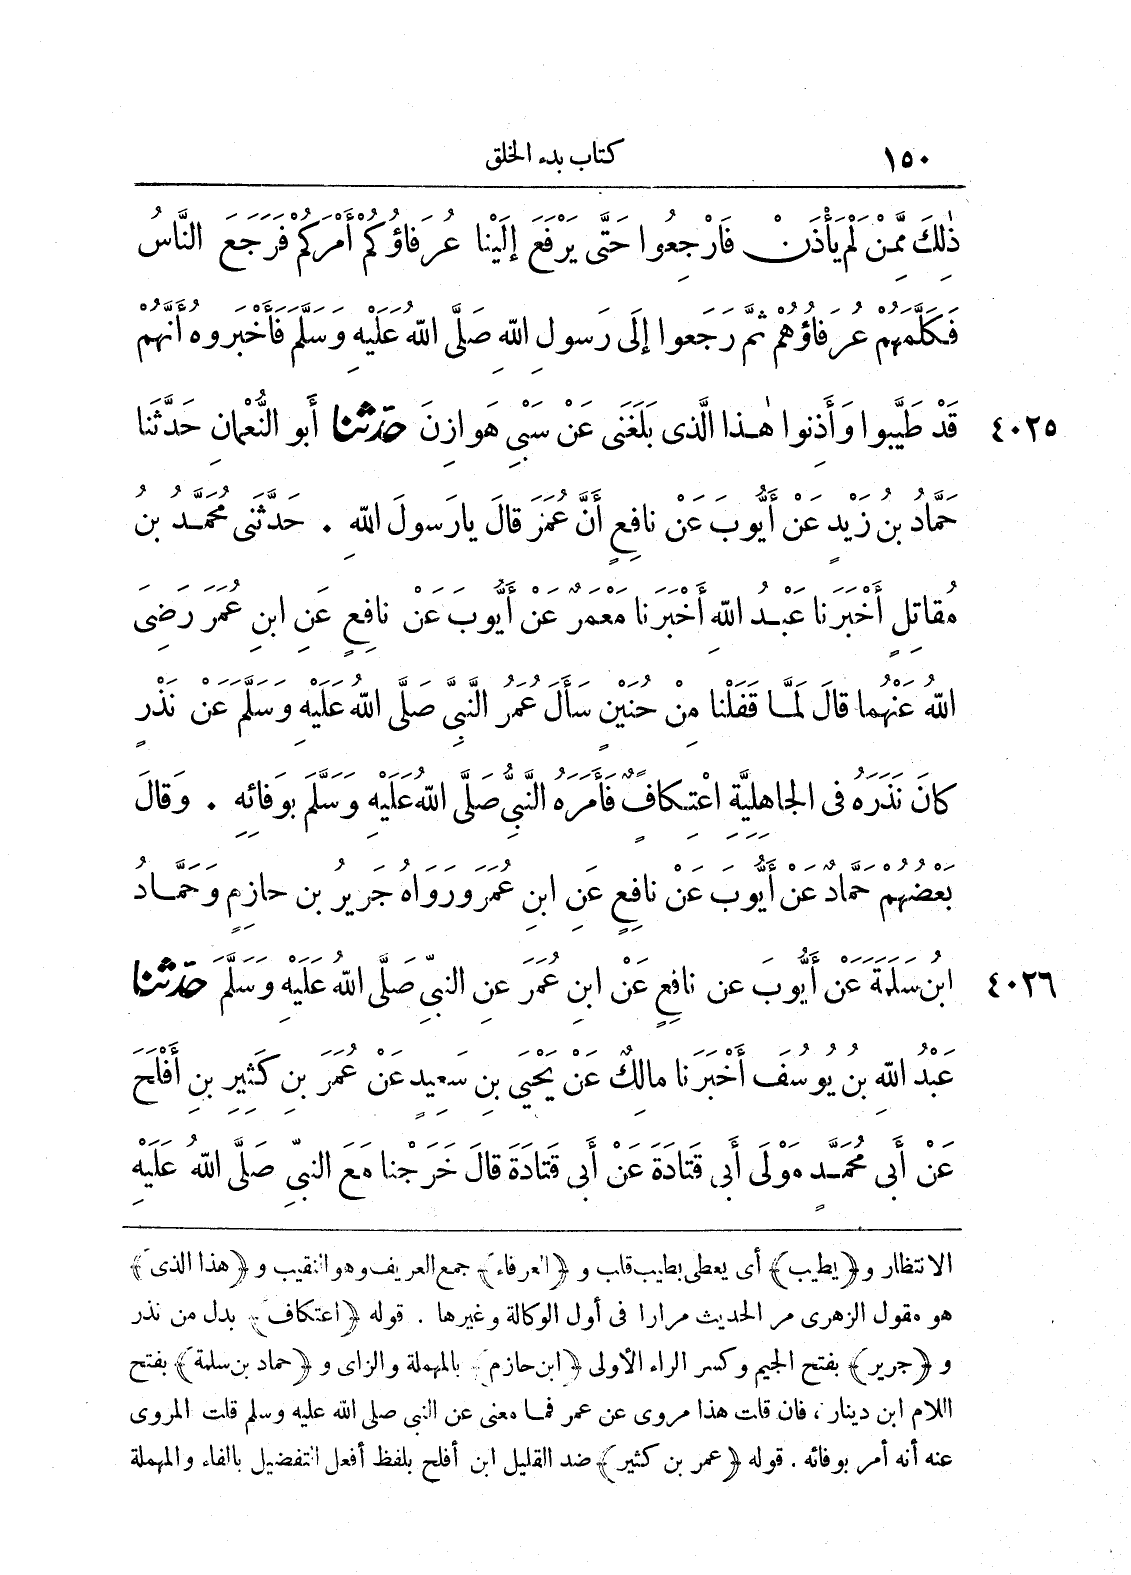 ١٥٠ كتاب بدء الخلق
ذٰلِكَ مِمَّنْ لَمْ يَأْذَنْ فَارْجِعُوا حَتَّى يَرْفَعَ إِلَيْنَا عُرَفَاؤُكُمْ أَمْرَكُمْ فَرَجَعَ النَّاسُ
فَكَلَّمَهُمْ عُرَفَاؤُهُمْ ثُمَّ رَجَعُوا إِلَى رَسُولِ اللّٰهِ صَلَّى اللّٰهُ عَلَيْهِ وَسَلَّمَ فَأَخْبَرُوهُ أَنَّهُمْ
٤٠٢٥ قَدْ طَيَّبُوا وَأَذِنُوا هٰذَا الَّذِى بَلَغَنِى عَنْ سَبْىِ هَوَازِنَ حَدَّثَنَا أَبُو النُّعْمَانِ حَدَّثَنَا
حَمَّادُ بْنُ زَيْدٍ عَنْ أَيُّوبَ عَنْ نَافِعٍ أَنَّ عُمَرَ قَالَ يَا رَسُولَ اللّٰهِ . حَدَّثَنِى مُحَمَّدُ بْنُ
مُقَاتِلٍ أَخْبَرَنَا عَبْدُ اللّٰهِ أَخْبَرَنَا مَعْمَرٌ عَنْ أَيُّوبَ عَنْ نَافِعٍ عَنِ ابْنِ عُمَرَ رَضِىَ
اللّٰهُ عَنْهُمَا قَالَ لَمَّا قَفَلْنَا مِنْ حُنَيْنٍ سَأَلَ عُمَرُ النَّبِىَّ صَلَّى اللّٰهُ عَلَيْهِ وَسَلَّمَ عَنْ نَذْرٍ
كَانَ نَذَرَهُ فِى الْجَاهِلِيَّةِ اعْتِكَافٍ فَأَمَرَهُ النَّبِىُّ صَلَّى اللّٰهُ عَلَيْهِ وَسَلَّمَ بِوَفَائِهِ . وَقَالَ
بَعْضُهُمْ حَمَّادٌ عَنْ أَيُّوبَ عَنْ نَافِعٍ عَنِ ابْنِ عُمَرَ وَرَوَاهُ جَرِيرُ بْنُ حَازِمٍ وَحَمَّادُ
٤٠٢٦ ابْنُ سَلَمَةَ عَنْ أَيُّوبَ عَنْ نَافِعٍ عَنْ ابْنِ عُمَرَ عَنِ النَّبِىِّ صَلَّى اللّٰهُ عَلَيْهِ وَسَلَّمَ حَدَّثَنَا
عَبْدُ اللّٰهِ بْنُ يُوسُفَ أَخْبَرَنَا مَالِكٌ عَنْ يَحْيَى بْنِ سَعِيدٍ عَنْ عُمَرَ بْنِ كَثِيرِ بْنِ أَفْلَحَ
عَنْ أَبِى مُحَمَّدٍ مَوْلَى أَبِى قَتَادَةَ عَنْ أَبِى قَتَادَةَ قَالَ خَرَجْنَا مَعَ النَّبِىِّ صَلَّى اللّٰهُ عَلَيْهِ
الانتظار و ﴿يطيب﴾ أى يعطى بطيب قلب و ﴿العرفاء﴾ جمع العريف وهو النقيب و ﴿هذا الذى﴾
هو مقول الزهرى مر الحديث مرارا فى أول الوكالة وغيرها . قوله ﴿اعتكاف﴾ بدل من نذر
و ﴿جرير﴾ بفتح الجيم وكسر الراء الأولى ﴿ابن حازم﴾ بالمهملة والزاى و ﴿حماد بن سلمة﴾ بفتح
اللام ابن دينار ، فان قلت هذا مروى عن عمر فما معنى عن النبى صلى الله عليه وسلم قلت المروى
عنه أنه أمر بوفائه . قوله ﴿عمر بن كثير﴾ ضد القليل ابن أفلح بلفظ أفعل التفضيل بالفاء والمهملة